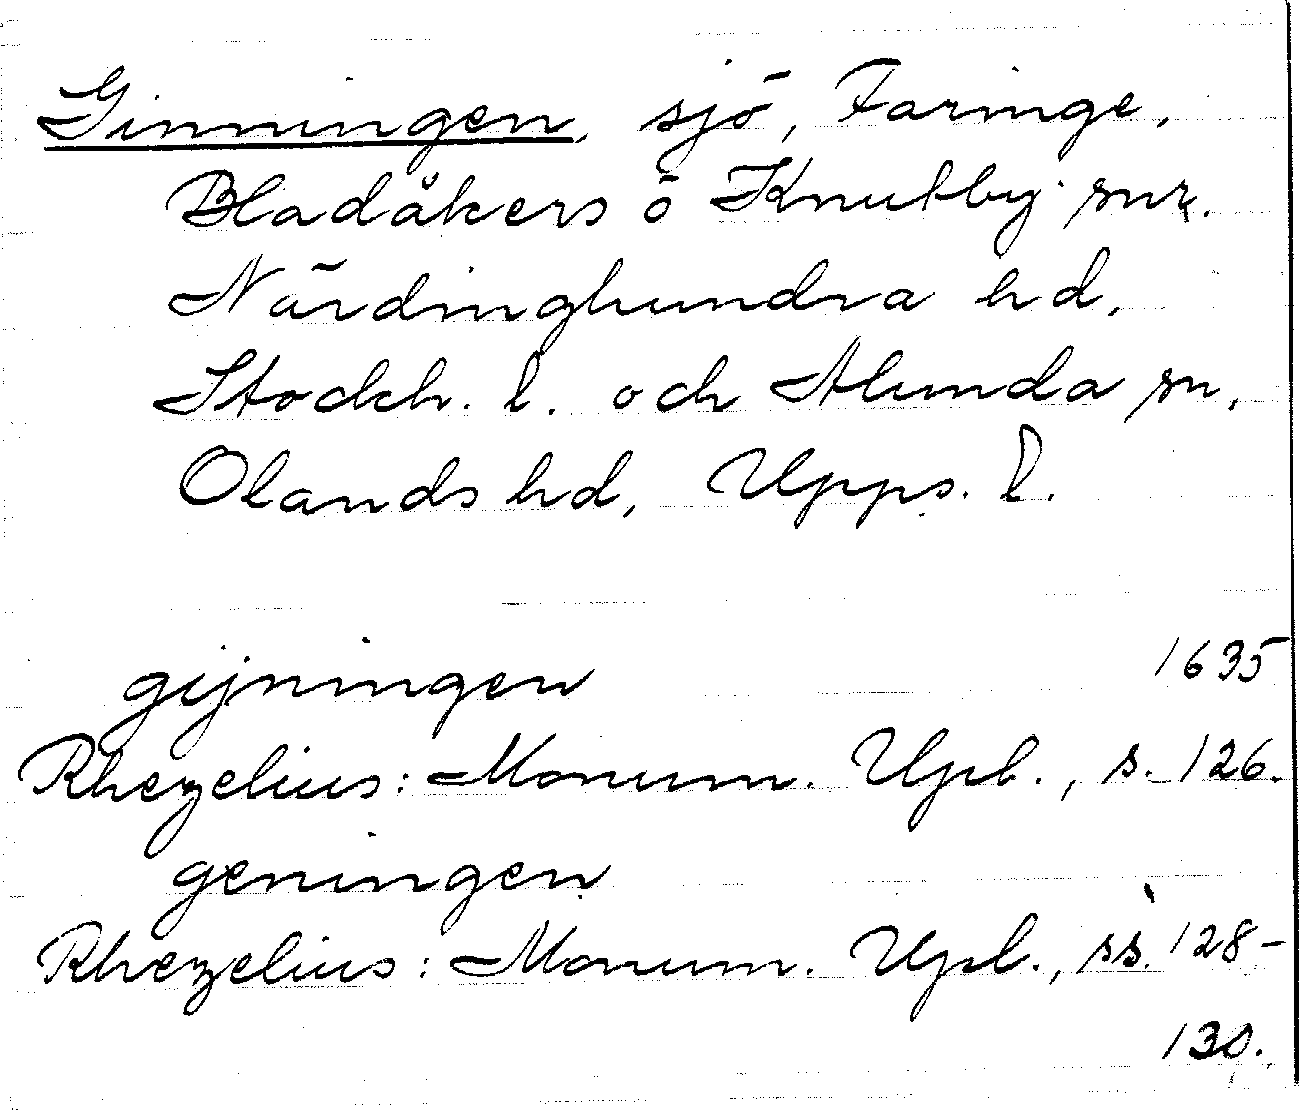 Ginningen, sjö, Faringe,
Bladåkers o Knutby snr.
Närdinghundra hd,
Stockh. l. och Alunda sn,
Olands hd, Upps. l.
gijningen 1635
Rhezelius: Monum. Upl., s. 126.
geningen
Rhezelius: Monum. Upl., ss. 128-
130.